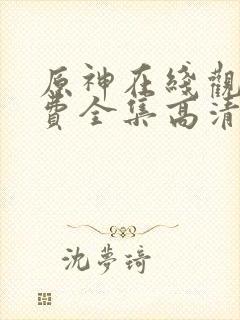 原神在綫觀
費全集高清
沈夢琦